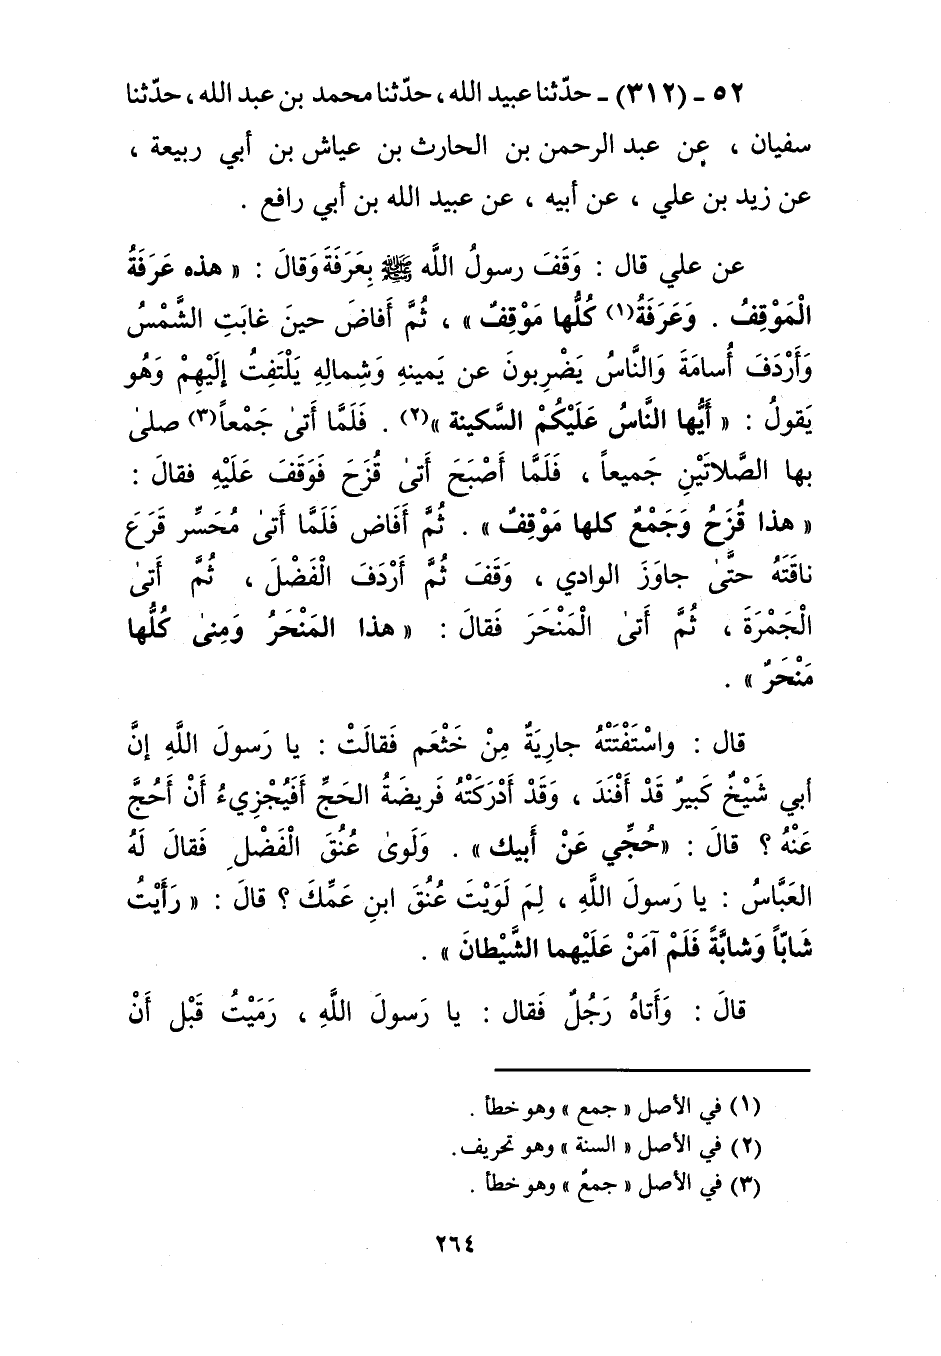 ٥٢ ـ (٣١٢) ـ حدّثنا عبيد الله ، حدّثنا محمد بن عبد الله ، حدّثنا
سفيان ، عن عبد الرحمن بن الحارث بن عياش بن أبي ربيعة ،
عن زيد بن علي ، عن أبيه ، عن عبيد الله بن أبي رافع .
عن علي قال : وَقَفَ رسولُ اللَّه ﷺ بِعَرَفَةَ وَقالَ : « هذه عَرَفَةُ
الْمَوْقِفُ . وَعَرَفَةُ(١) كُلُّها مَوْقِفٌ » ، ثُمَّ أَفاضَ حينَ غابَتِ الشَّمْسُ
وَأَرْدَفَ أُسامَةَ وَالنَّاسُ يَضْرِبونَ عن يَمينهِ وَشِمالِهِ يَلْتَفِتُ إلَيْهِمْ وَهُو
يَقولُ : « أَيُّها النَّاسُ عَلَيْكُمْ السَّكينة »(٢) . فَلَمَّا أَتىٰ جَمْعاً(٣) صلىٰ
بها الصَّلاتَيْنِ جَميعاً ، فَلَمَّا أَصْبَحَ أَتىٰ قُزَحَ فَوَقَفَ عَلَيْهِ فقالَ :
« هذا قُزَحُ وَجَمْعٌ كلها مَوْقِفٌ » . ثُمَّ أَفَاض فَلَمَّا أَتىٰ مُحَسِّر قَرَعَ
ناقَتَهُ حتَّىٰ جاوَزَ الوادي ، وَقَفَ ثُمَّ أَرْدَفَ الْفَضْلَ ، ثُمَّ أَتىٰ
الْجَمْرَةَ ، ثُمَّ أَتىٰ الْمَنْحَرَ فَقالَ : « هذا المَنْحَرُ وَمِنىٰ كُلُّها
مَنْحَرٌ » .
قال : واسْتَفْتَتْهُ جارِيَةٌ مِنْ خَثْعَم فَقالَتْ : يا رَسولَ اللَّهِ إنَّ
أبي شَيْخٌ كَبيرٌ قَدْ أَفْنَدَ ، وَقَدْ أَدْرَكَتْهُ فَريضَةُ الحَجِّ أَفَيُجْزِيءُ أَنْ أَحُجَّ
عَنْهُ ؟ قالَ : «حُجِّي عَنْ أَبيك » . وَلَوىٰ عُنُقَ الْفَضْلِ فَقالَ لَهُ
العَبَّاسُ : يا رَسولَ اللَّهِ ، لِمَ لَوَيْتَ عُنُقَ ابنِ عَمِّكَ ؟ قالَ : « رَأَيْتُ
شَابّاً وَشابَّةً فَلَمْ آمَنْ عَلَيْهما الشَّيْطانَ » .
قالَ : وَأَتاهُ رَجُلٌ فَقال : يا رَسولَ اللَّهِ ، رَمَيْتُ قَبْل أَنْ
(١) في الأصل « جمع » وهو خطأ .
(٢) في الأصل « السنة » وهو تحريف.
(٣) في الأصل « جمعٌ » وهو خطأ .
٢٦٤